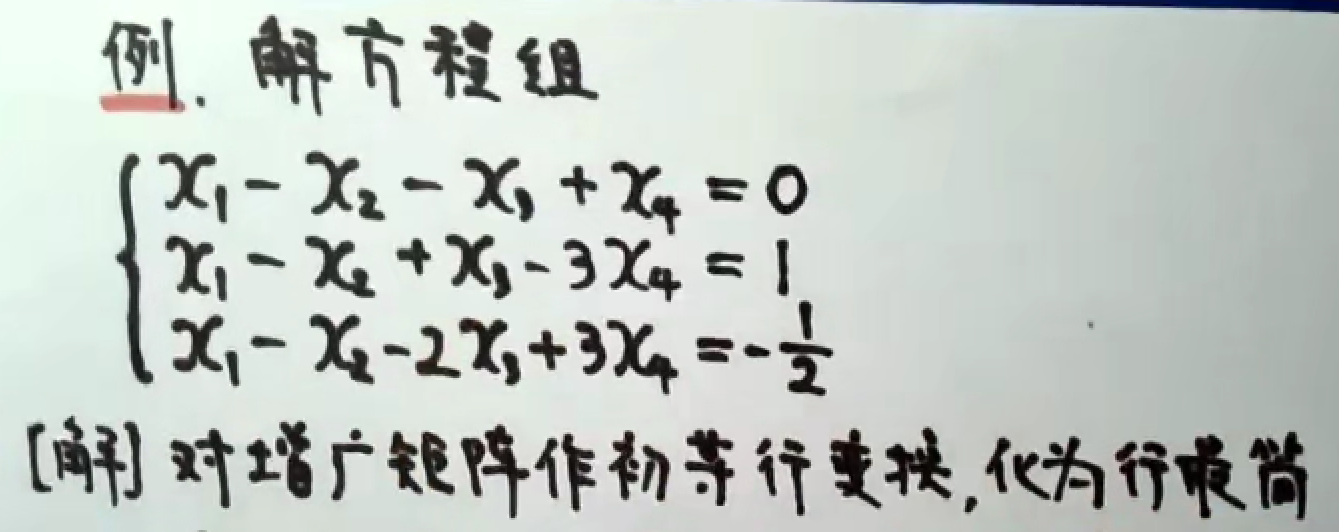 例. 解方程组
x₁ - x₂ - x₃ + x₄ = 0
x₁ - x₂ + x₃ - 3x₄ = 1
x₁ - x₂ - 2x₃ + 3x₄ = -1/2
[解] 对增广矩阵作初等行变换,化为行最简